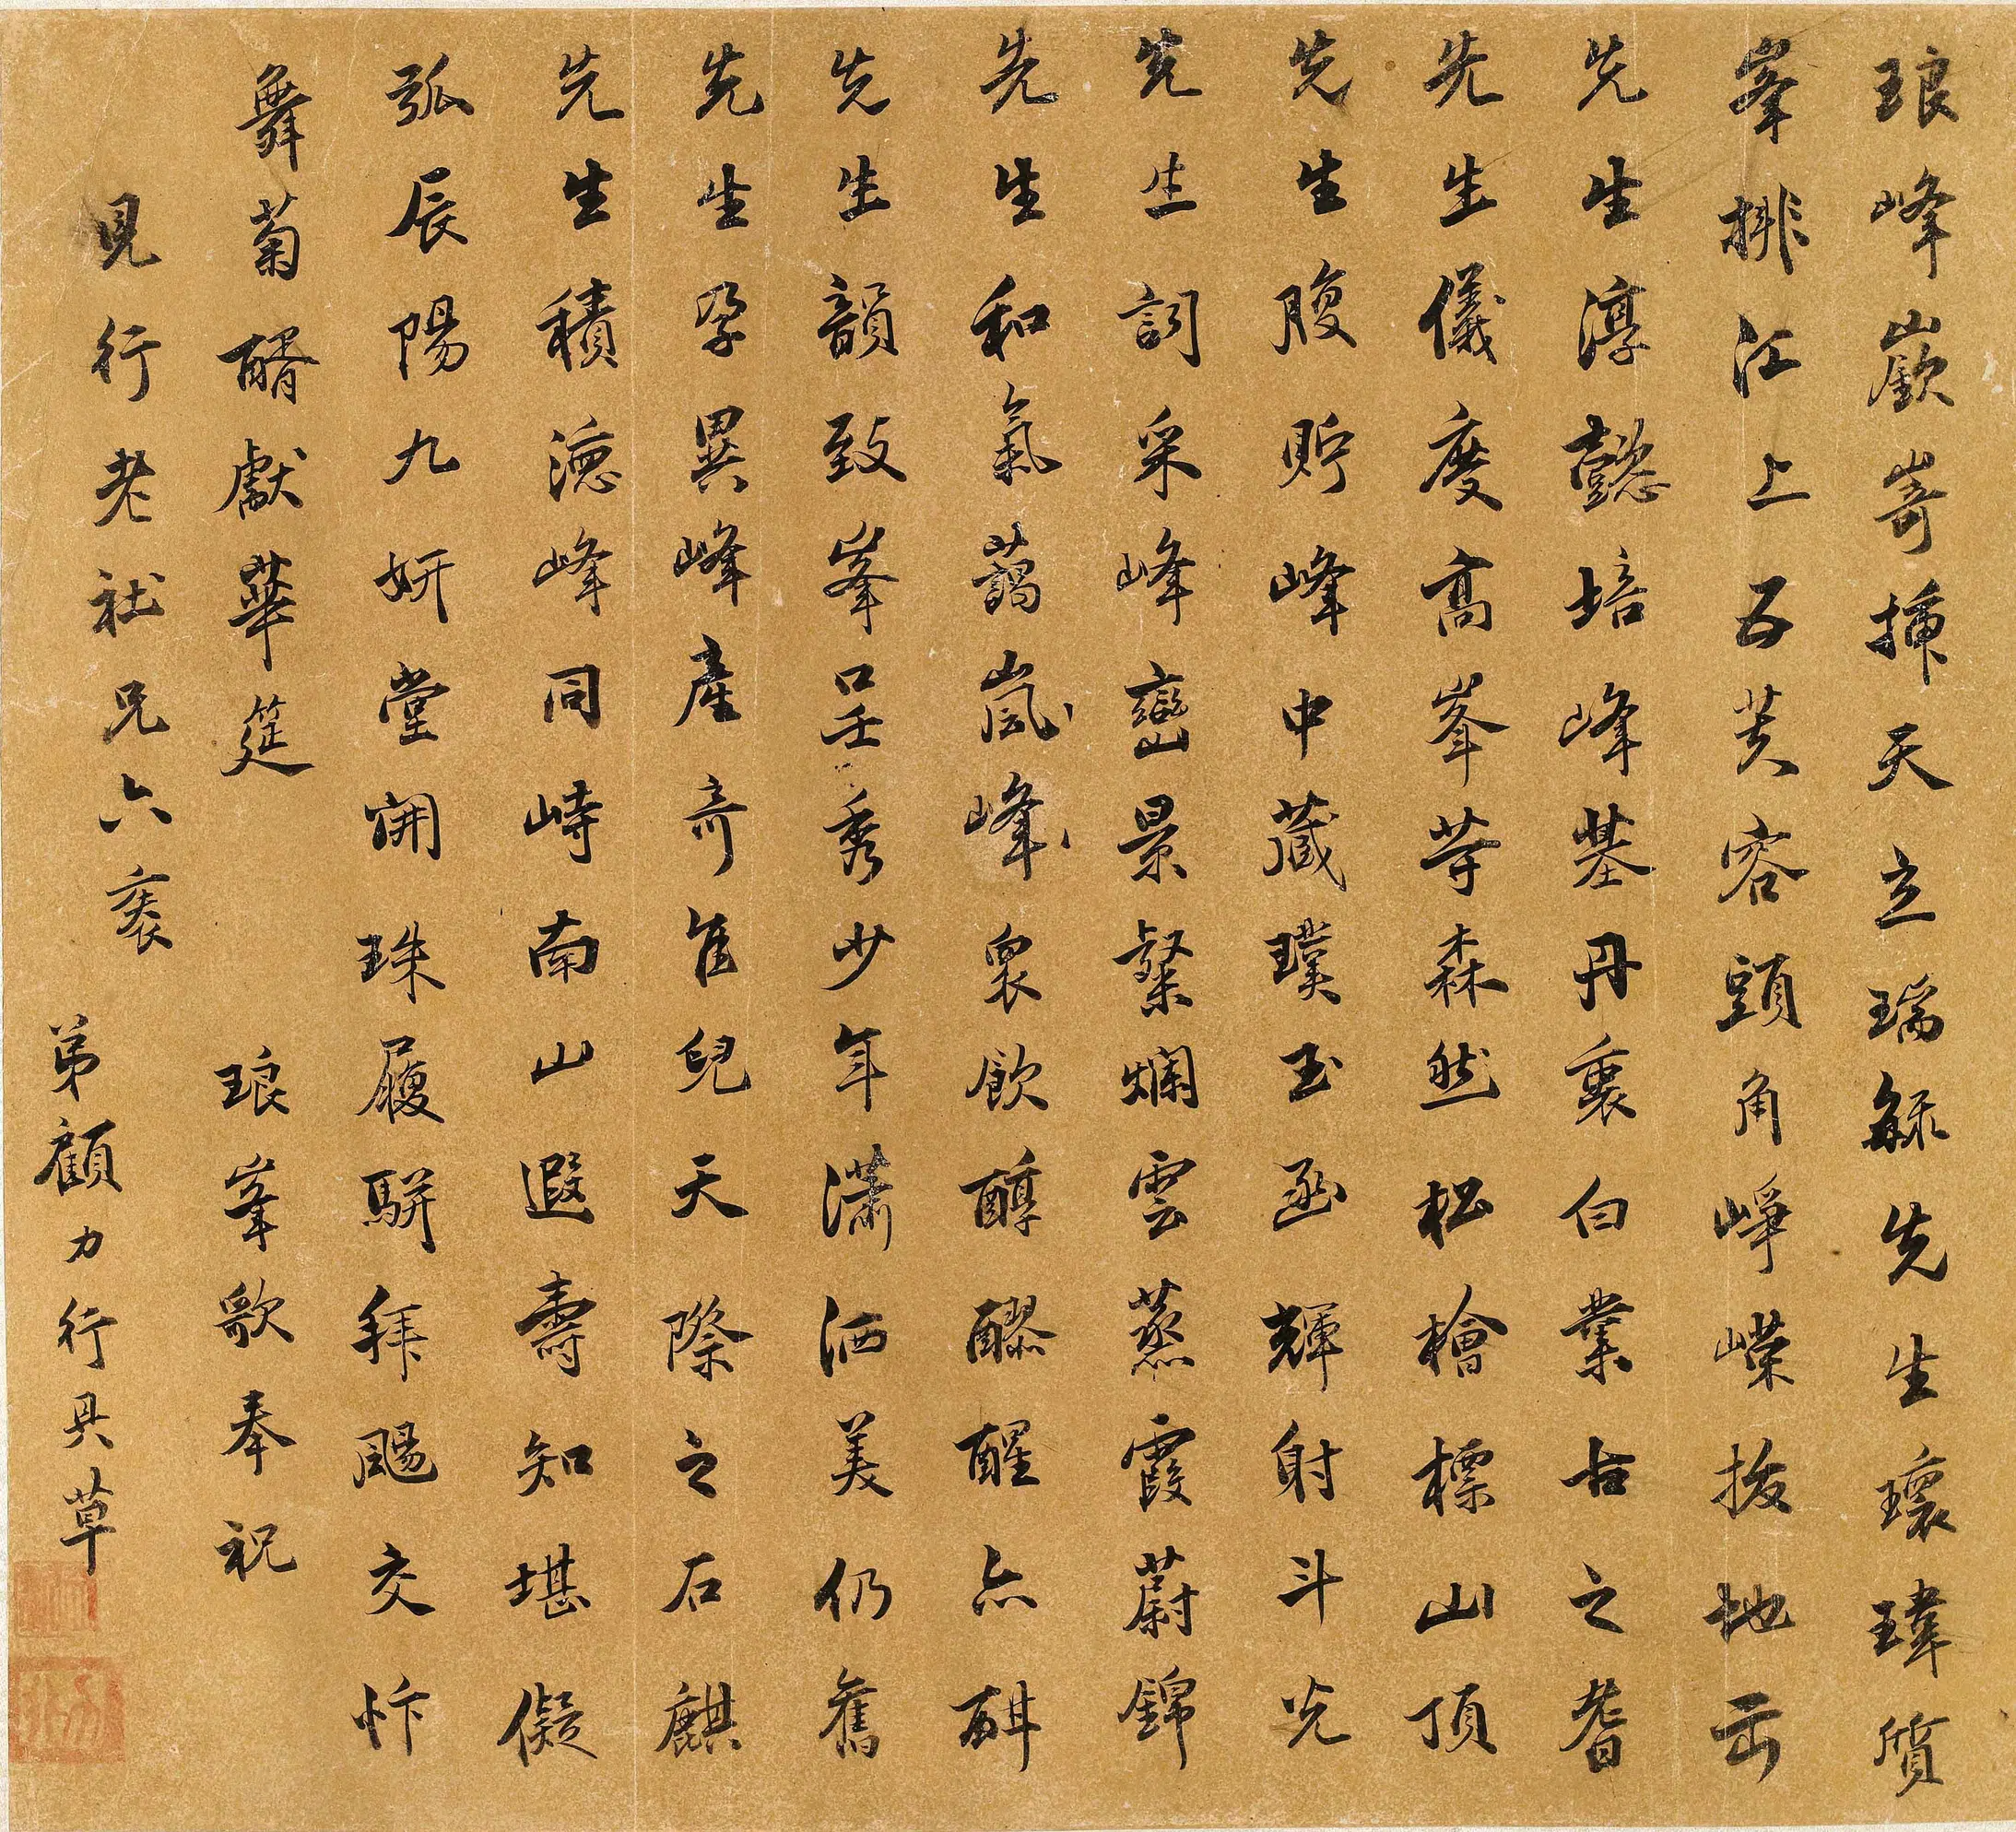 琅峰嶔嵜揷天立瑞毓先生瓌瑋質
峯排江上五芙容頭角崢嶸拔地出
先生淳懿培峰基丹裏白業古之耆
先生儀度高峯等森然松檜標山頂
先生腹貯峰中藏璞玉函輝射斗光
先生詞采峰巒景粲爛雲蒸霞蔚錦
先生和氣藹嵐峰衆飲醇醪醒亦酣
先生韻致峯口呈秀少年瀟洒美仍舊
先生孕異峰產奇隹兒天際之石麒
先生積德峰同峙南山遐壽知堪儗
弧辰陽九妍堂開珠履駢拜颺交忭
舞菊醑獻華筵 琅峯歌奉祝
見行老社兄六袠
弟顧力行具草